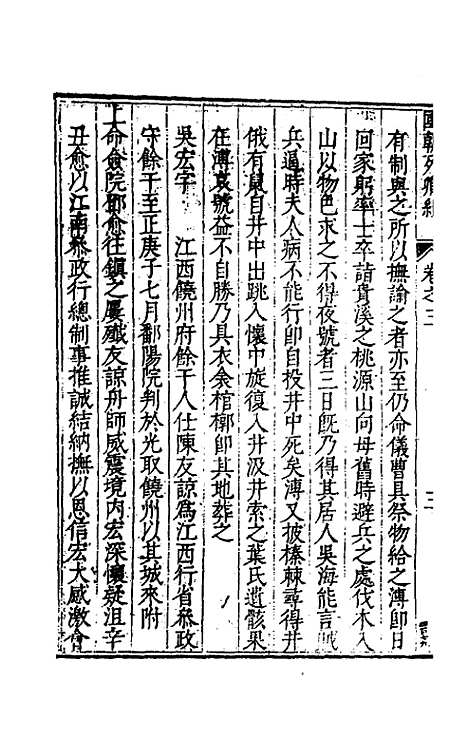 國朝列卿紀 卷之三 二
有制與之所以撫諭之者亦至仍命儀曹具祭物給之溥即日
回家躬率士卒詣貴溪之桃源山向母舊時避兵之處伐木入
山以物色求之不得夜號者三日既乃得其居人吳海能言賊
兵逼時夫人病不能行即自投井中死矣溥又披榛棘尋得井
俄有鼠自井中出跳入懷中旋復入井汲井索之葉氏遺骸果
在溥哀號益不自勝乃具衣衾棺槨即其地葬之
吳宏字 江西饒州府餘干人仕陳友諒為江西行省參政
守餘干至正庚子七月鄱陽院判於光取饒州以其城來附
上命僉院鄧愈往鎮之屢殲友諒舟師威震境內宏深懷疑沮辛
丑愈以江南參政行總制事推誠結納撫以恩信宏大感激會